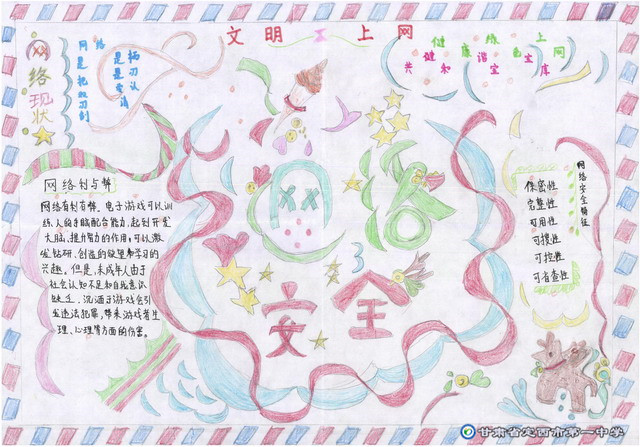 文明 上网
健康 绿色 上网
共 和谐
网络现状
网络是把双刃剑
网络利与弊
网络有利有弊,电子游戏可以训
练人的手脑配合能力,起到开发
大脑、提升智力的作用,可以激
发钻研、创造的欲望和学习的
兴趣。但是,未成年人由于
社会认知不足和自我意识
缺乏,沉湎于游戏会引
发违法犯罪,带来游戏者生
理、心理等方面的伤害。
网络
安全
网络安全特征
保密性
完整性
可用性
可控性
可审查性
甘肃省定西市第一中学